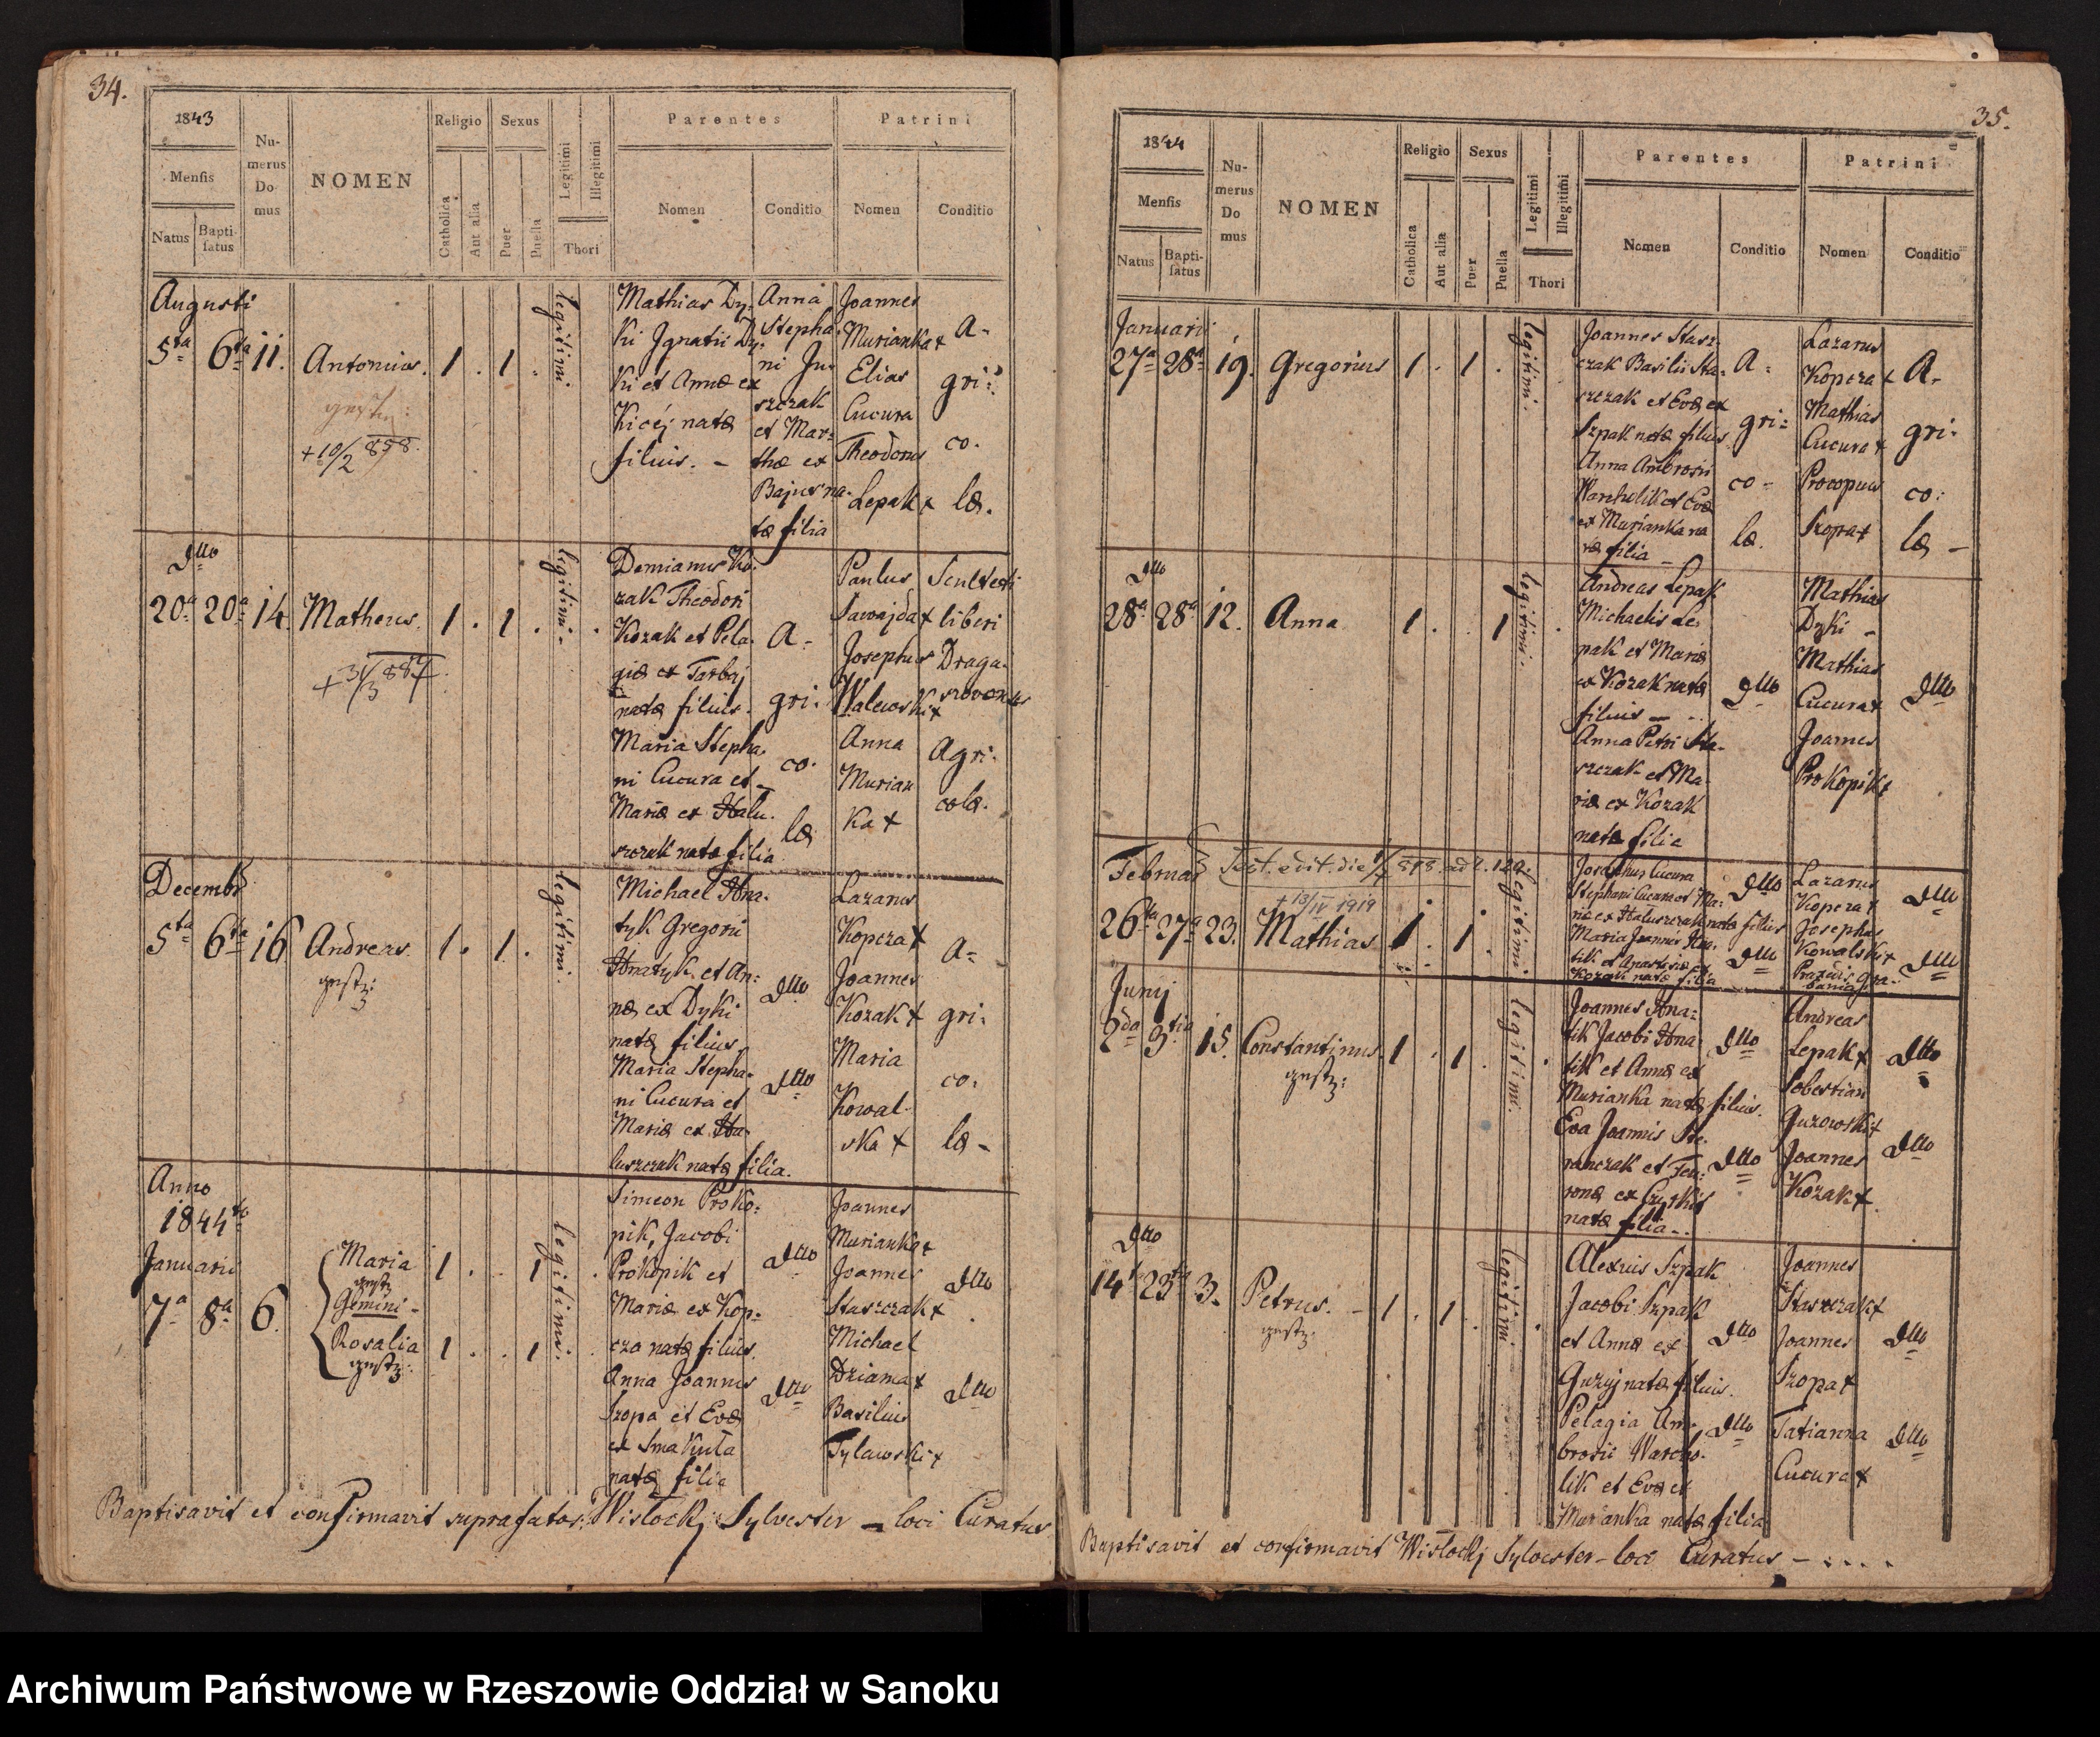 34.
1843
Mensis
Natus
Bapti-
satus
Nu-
merus
Do
mus
NOMEN
Religio
Catholica
Aut alia
Sexus
Puer
Puella
Legitimi
Illegitimi
Thori
Parentes
Nomen
Conditio
Patrini
Nomen
Conditio
Augusti
5ta 6ta 11. Antonius. 1 . 1 .
gestz:
+10/2 858.
legitimi
Mathias Dy-
ki Ignatii Dy-
ki et Annæ ex
Kicej natæ
filius. -
Anna
Stepha-
ni Ju-
szczak
et Mar-
thæ ex
Bajus na-
tæ filia
Joannes
Murianka+
Elias
Cucura
Theodorus
Lepak+
A-
gri-
co-
læ.
Dtto
20a 20a 14. Matheus. 1 . 1 .
+31/3 887
legitimi-
Demianus Ko-
zak Theodori
Kozak et Pela-
giæ ex Tarbaj
natæ filius.
Maria Stepha-
ni Cucura et
Mariæ ex Halu-
szczak natæ filia
A-
gri-
co-
læ
Paulus
Sawajda+
Josephus
Walewski+
Anna
Murian
ka+
Sculteti
liberi
Draga-
szovensis
Agri-
colæ.
Decembr
5ta 6ta 16 Andreas. 1. 1.
gestz:
legitimi.
Michael Hna-
tyk Gregorii
Hnatyk et An-
næ ex Dyki
natæ filius.
Maria Stepha-
ni Cucura et
Mariæ ex Ha-
luszczak natæ filia.
Dtto
Dtto
Lazarus
Kopcza+
Joannes
Kozak+
Maria
Kowal-
ska+
A-
gri-
co-
læ-
Anno
1844to
Januarii
7a 8a 6.
Maria 1 . . 1
gestz
Gemini-
Rosalia 1 . . 1
gestz:
legitimi.
Simeon Proko-
pik, Jacobi
Prokopik et
Mariæ ex Kop-
cza natæ filius.
Anna Joannis
Szopa et Evæ
ex Smakuła
natæ filia
Dtto
Dtto
Joannes
Murianka+
Joannes
Staszczak+
Michael
Dziama+
Basilius
Tylawski+
Dtto
Dtto
Baptisavit et confirmavit suprafatos: Wisłockj Sylvester - loci Curatus
35.
1844
Mensis
Natus
Bapti-
satus
Nu-
merus
Do
mus
NOMEN
Religio
Catholica
Aut alia
Sexus
Puer
Puella
Legitimi
Illegitimi
Thori
Parentes
Nomen
Conditio
Patrini
Nomen
Conditio
Januarii
27a 28a 19. Gregorius 1 . 1 .
legitimi.
Joannes Stasz-
czak Basilii Sta-
szczak et Evæ ex
Szpak natæ filius
Anna Ambrosii
Warcholik et Evæ
ex Murianka na
tæ filia -
A-
gri-
co-
læ.
Lazarus
Kopcza+
Mathias
Cucura+
Procopius
Szopa+
A-
gri-
co-
læ-
Dtto
28a 28a 12. Anna 1 . . 1
legitimi.
Andreas Lepak
Michaelis Le-
pak et Mariæ
ex Kozak natæ
filius -
Anna Petri Sta-
szczak et Ma-
riæ ex Kozak
natæ filia
Dtto
Mathias
Dyki -
Mathias
Cucura+
Joannes
Prokopik+
Dtto
Februar
Test. edit. die
+13/IV 1919
26ta 27a 23. Mathias 1 . 1 .
legitimi
Josephus Cucura
Stephani Cucura et Ma-
riæ ex Haluszczak natæ filius
Maria Joannis Hna-
tik et Anastasiæ ex
Kozak natæ filia
Dtto
Dtto
Lazarus
Kopcza+
Josephus
Kowalski+
Dtto
Dtto
Junÿ
2da 3tia 15. Constantinus 1 . 1 .
gestz:
legitimi.
Joannes Hna-
tik Jacobi Hna
tik et Annæ ex
Murianka natæ filius.
Eva Joannis
natæ filia-.
Dtto
Dtto
Andreas
Lepak+
Sebestian
Guzowski+
Joannes
Kozak+
Dtto
Dtto
Dtto
14ta 23tia 3. Petrus. - 1 . 1 .
gestz:
legitimi.
Alexius Szpak
Jacobi Szpak
et Annæ ex
Guzyj natæ filius.
Pelagia Am-
brosii Warcho-
lik et Evæ ex
Murianka natæ filia
Dtto
Dtto
Joannes
Staszczak+
Joannes
Szopa+
Tatianna
Cucura+
Dtto
Dtto
Baptisavit et confirmavit Wisłockj Sylvester - loci Curatus - . . . .
Archiwum Państwowe w Rzeszowie Oddział w Sanoku